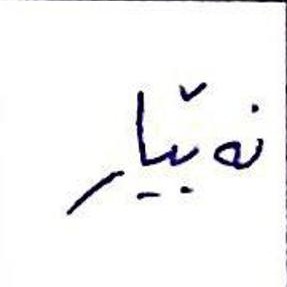 نەێیار